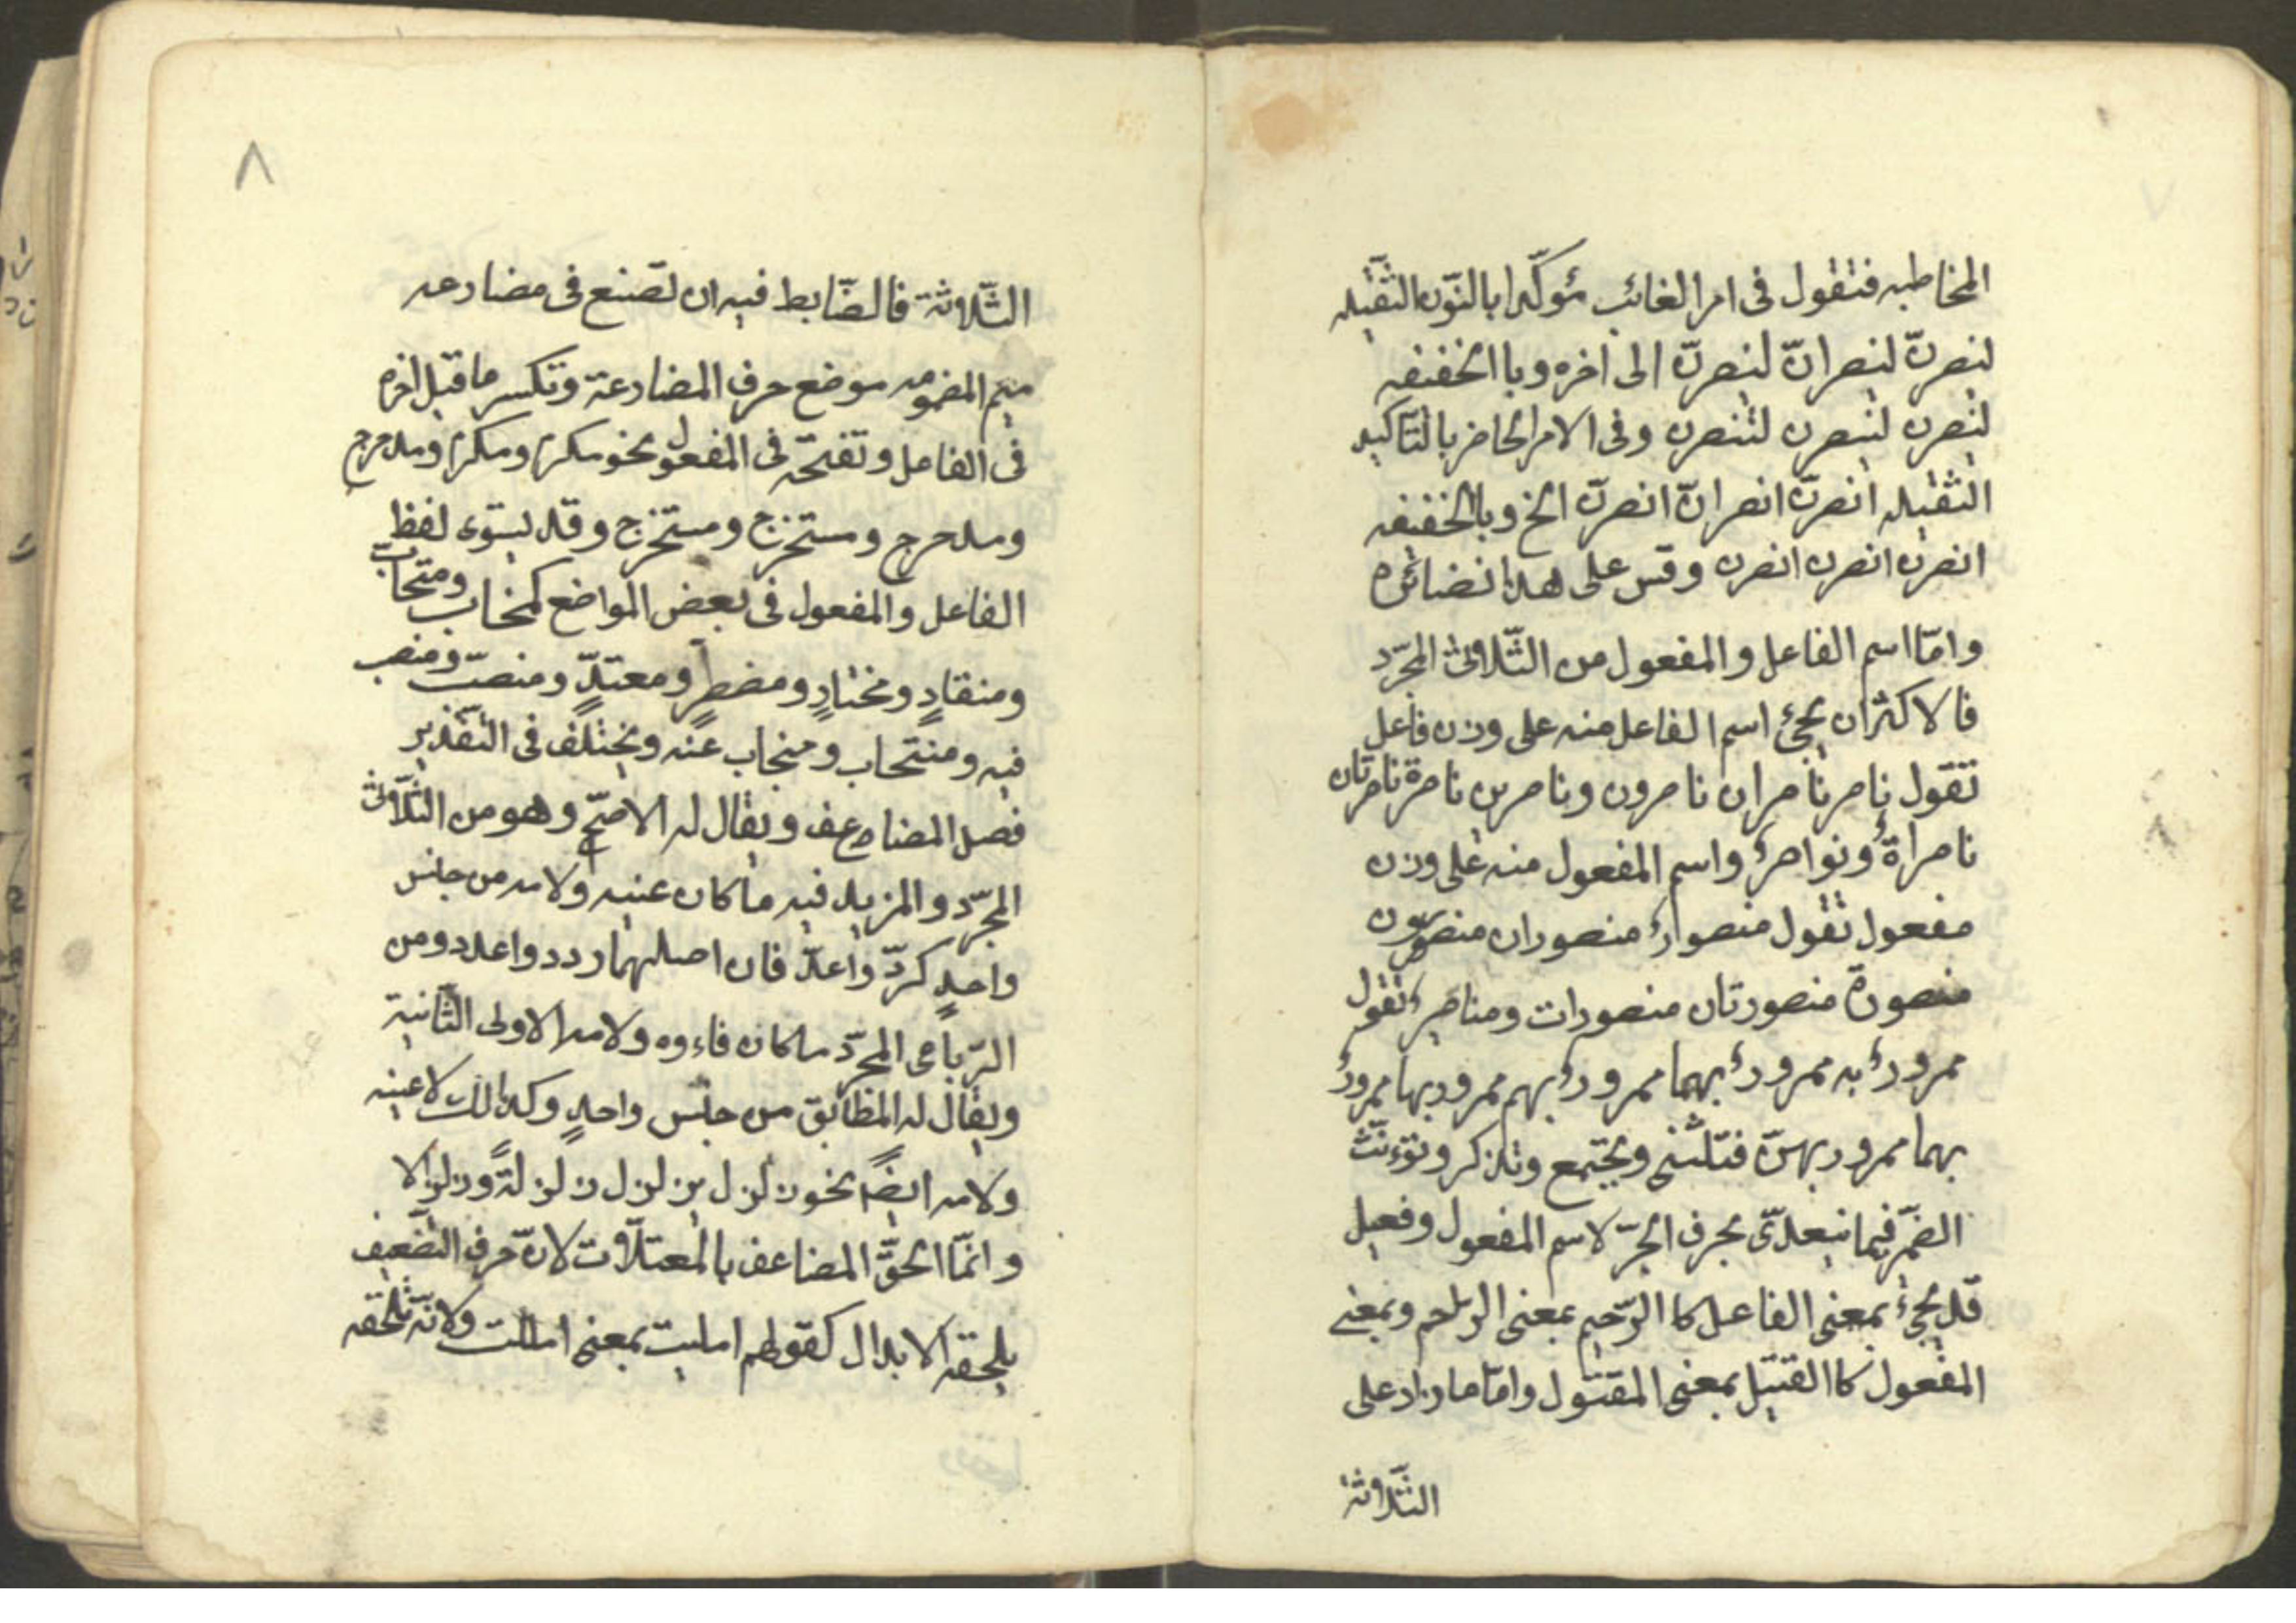 المخاطبه فتقول فى امر الغائب مؤكّدا بالنّون الثّقيله
لينصرنّ لينصرانّ لينصرنّ الى اخره وبا الخفيفه
لينصرن لينصرن لتنصرن وفى الامر الحاضر بالتّاكيد
الثقيله انصرنّ انصرانّ انصرنّ الخ وبالخفيفه
انصرن انصرن انصرن وقس على هذا نضائره
وامّا اسم الفاعل والمفعول من الثّلاثى المجرّد
فالاكثران يجئ اسم الفاعل منه على وزن فاعل
تقول ناصر ناصران ناصرون وناصرين ناصرة ناصرتان
ناصراة ونواصر واسم المفعول منه على وزن
مفعول تقول منصوار منصوران منصورون
منصورة منصورتان منصورات ومناصر تقول
ممرور به ممرور بهما ممرور بهم ممرور بها ممرور
بهما ممرور بهنّ فتثنى ويجتمع وتذكر وتؤنّث
الضمّير فيما يتعدّى بحرف الجرّ لاسم المفعول وفعيل
قد يجئ بمعنى الفاعل كا الرّحيم بمعنى الرّاحم وبمعنى
المفعول كا القتيل بمعنى المقتول وامّا ما زاد على
الثّلاثة
٨
الثّلاثة فالضّابط فيه ان تصنع فى مضارعه
ميم المضمومه موضع حرف المضارعة وتكسر ما قبل اخره
فى الفاعل وتفتحه فى المفعول نحو مكرم ومكرم ومدحرج
ومدحرج ومستخرج ومستخرج وقد يستوى لفظ
الفاعل والمفعول فى بعض المواضع كمخاب ومتحابّ
ومنقادٍ ومختارٍ ومضطرٍ ومعتدٍّ ومنصبّ ومنصب
فيه ومنتحاب ومنجاب عنه ويختلف فى التّقدير
فصل المضاعف ويقال له الاصحّ وهو من الثّلاثى
المجرّد والمزيد فيه ما كان عينه ولامه من جنس
واحدٍ كردّ واعدّ فان اصلهما ردد واعدد ومن
الرّباعى المجرّد ما كان فاءوه ولامه الاولى الثّانية
ويقال له المظابق من جنس واحدٍ وكذالك لا عينه
ولامه ايضاً نحو زلزل يزلزل زلزلةً وزلزالا
وانمّا الحقّ المضاعف بالمعتلاّت لانّ حرف التضعيف
يلحقه الابدال كقولهم امليت بمعنى امللت ولانّه تلحقه